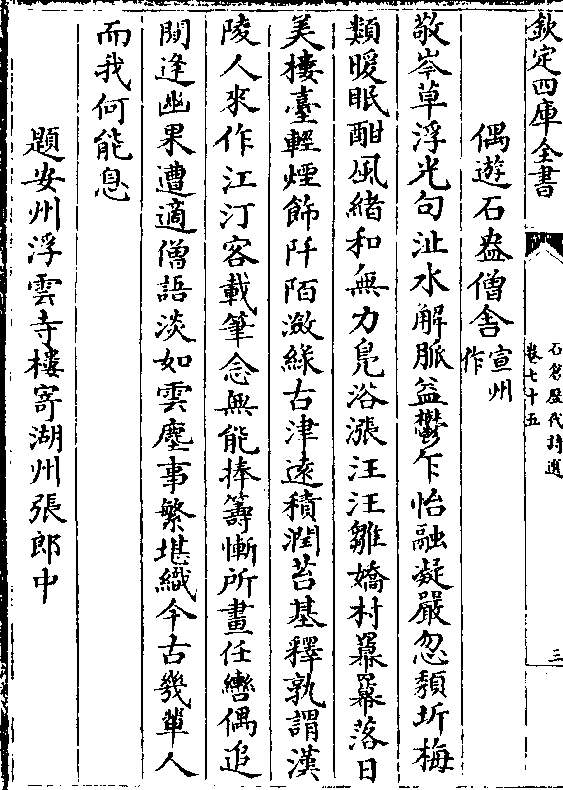 欽定四庫全書
石倉歷代詩選
卷七十五
三
偶遊石盎僧舍宣州作
敬岑草浮光句沚水解脈益鬱乍怡融凝嚴忽頹坼梅
類暖眠酣風緒和無力鳧浴漲汪汪雛嬌村羃羃落日
美樓臺輕煙飾阡陌瀲綠古津遠積潤苔基釋孰謂漢
陵人來作江汀客載筆念無能捧籌慚所畫任轡偶追
閒逢幽果遭適僧語淡如雲塵事繁堪織今古幾輩人
而我何能息
題安州浮雲寺樓寄湖州張郎中